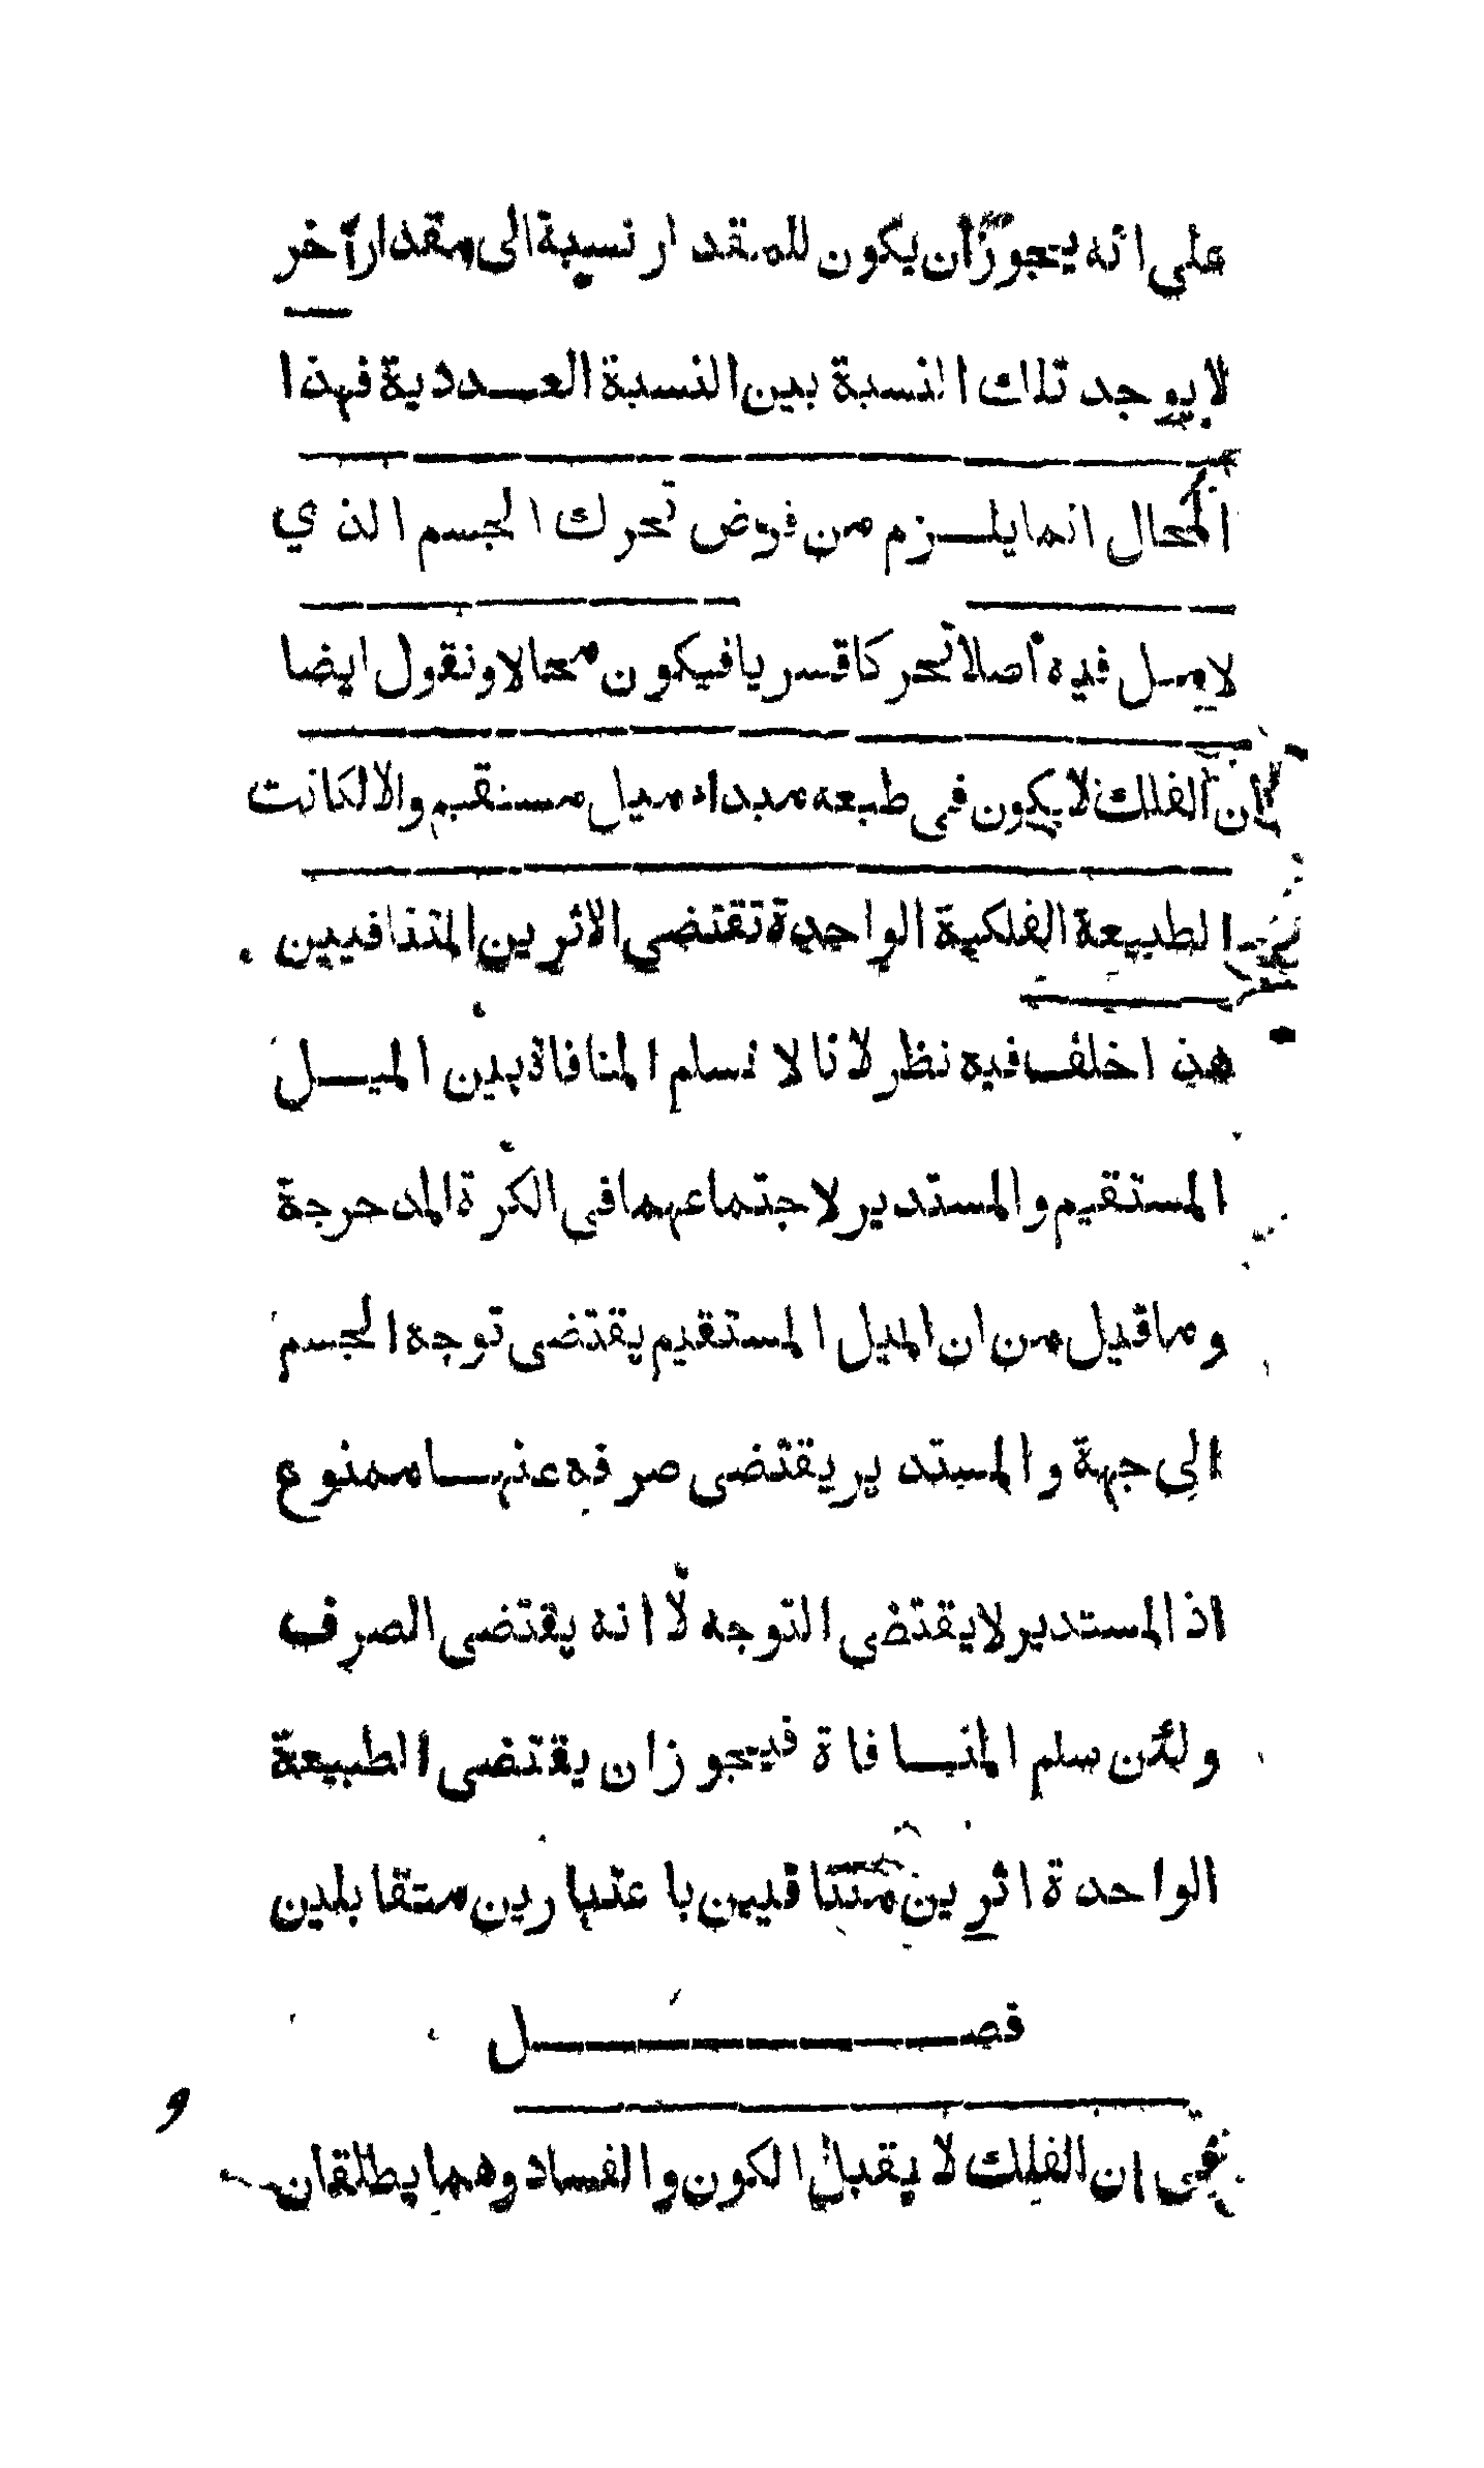 على انه يجوز ان يكون للمقدار نسبة الى مقدار آخر
لا يوجد تلك النسبة بين النسبة العددية فهذا
المحال انما يلزم من فرض تحرك الجسم الذي
لا ميل فيه أصلا تحركا قسريا فيكون محالا ونقول ايضا
ان الفلك لا يكون في طبعه مبداء ميل مستقيم والا لكانت
الطبيعة الفلكية الواحدة تقتضي الاثرين المتنافيين
هذا خلف فيه نظر لانا لا نسلم المنافاة بين الميل
المستقيم والمستدير لاجتماعهما في الكرة المدحرجة
وما قيل من ان الميل المستقيم يقتضى توجه الجسم
الى جهة والمستدير يقتضى صرفه عنها ممنوع
اذ المستدير لا يقتضي التوجه لا انه يقتضى الصرف
ولئن سلم المنافاة فيجوز ان يقتضى الطبيعة
الواحدة اثرين متنافيين باعتبارين متقابلين
فصل
في ان الفلك لا يقبل الكون والفساد وهما يطلقان
و